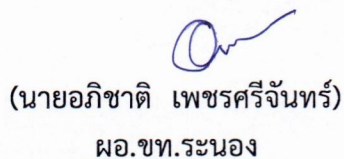 (นายอภิชาติ เพชรศรีจันทร์)
ผอ.ขท.ระนอง